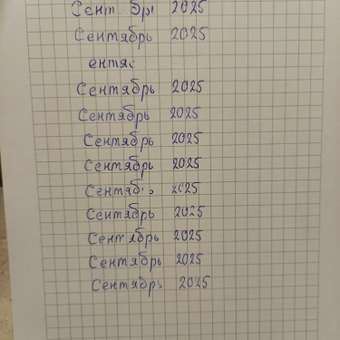 Сент бры 2025
Сентябрь 2025
ентя
Сентябрь 2025
Сентябрь 2025
Сентябрь 2025
Сентябрь 2025
Сентяб ь 2025
Сентябрь 2025
Сентябрь 2025
Сентябрь 2025
Сентябрь 2025